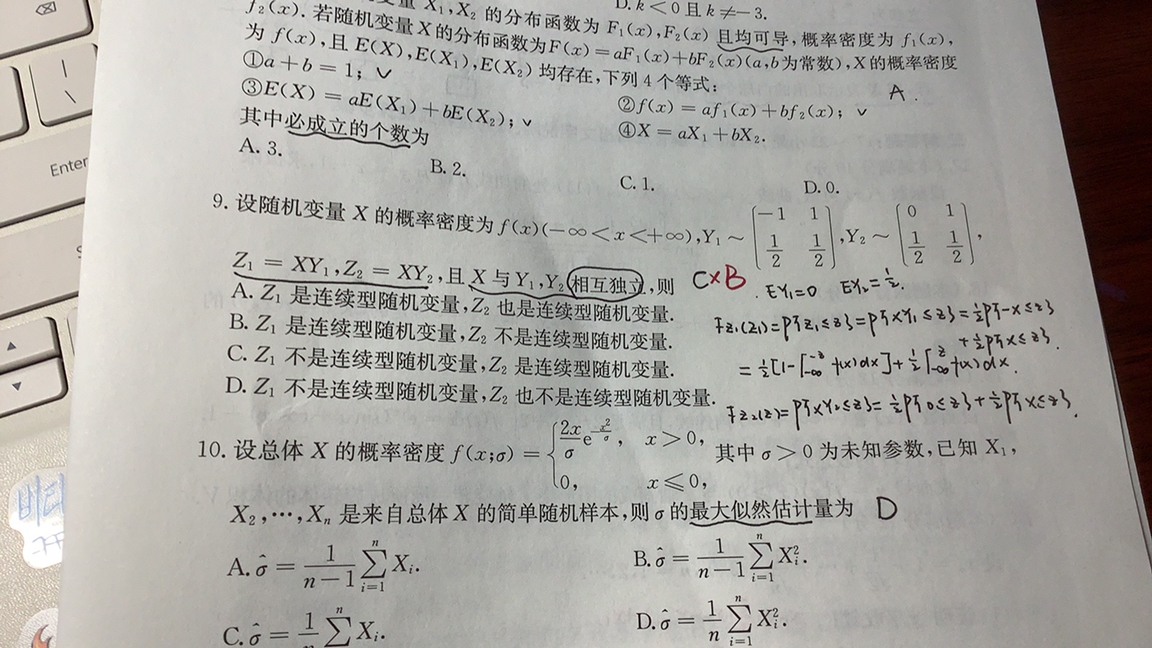 D. k<0且k≠-3.
X₁,X₂ 的分布函数为 F₁(x),F₂(x) 且均可导,概率密度为 f₁(x),
f₂(x). 若随机变量X的分布函数为F(x)=aF₁(x)+bF₂(x)(a,b为常数),X的概率密度
为 f(x),且 E(X),E(X₁),E(X₂) 均存在,下列4个等式:
A.
①a+b=1; ✓
②f(x)=af₁(x)+bf₂(x); ✓
③E(X)=aE(X₁)+bE(X₂); ✓
④X=aX₁+bX₂.
其中必成立的个数为
A. 3. B. 2. C. 1. D. 0.
9. 设随机变量 X 的概率密度为 f(x)(-∞<x<+∞),Y₁~(-1 1; 1/2 1/2),Y₂~(0 1; 1/2 1/2),
Z₁=XY₁,Z₂=XY₂,且 X 与 Y₁,Y₂ 相互独立,则 C×B
EY₁=0 EY₂=1/2.
A. Z₁ 是连续型随机变量,Z₂ 也是连续型随机变量.
B. Z₁ 是连续型随机变量,Z₂ 不是连续型随机变量.
C. Z₁ 不是连续型随机变量,Z₂ 是连续型随机变量.
D. Z₁ 不是连续型随机变量,Z₂ 也不是连续型随机变量.
Fz₁(z₁)=P{Z₁≤z}=P{XY₁≤z}=1/2P{-X≤z}
+1/2P{X≤z}.
=1/2[1-∫_{-∞}^{-z}f(x)dx]+1/2∫_{-∞}^{z}f(x)dx.
Fz₂(z)=P{XY₂≤z}=1/2P{0≤z}+1/2P{X≤z}.
10. 设总体 X 的概率密度 f(x;σ)={2x/σ e^{-x²/σ}, x>0, 0, x≤0, 其中 σ>0 为未知参数,已知 X₁,
X₂,…,Xₙ 是来自总体 X 的简单随机样本,则 σ 的最大似然估计量为 D
A. σ̂=1/(n-1) ∑_{i=1}^{n} Xᵢ. B. σ̂=1/(n-1) ∑_{i=1}^{n} Xᵢ².
C. σ̂=1/n ∑^{n} Xᵢ. D. σ̂=1/n ∑_{i=1}^{n} Xᵢ².
Enter